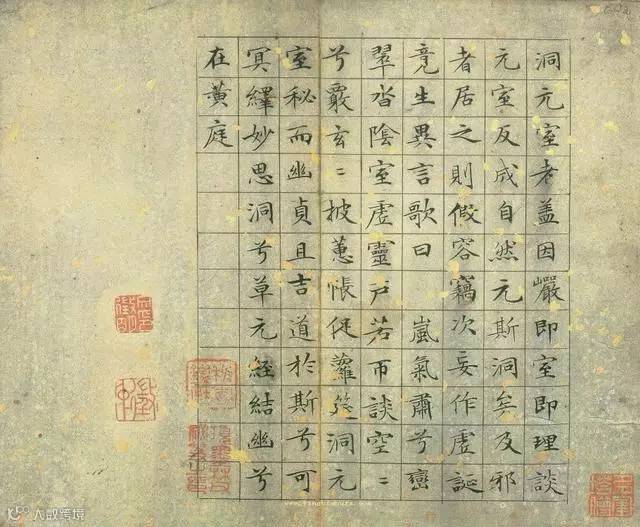 洞元室者盖因巖即室即理談
元室反成自然元斯洞矣及邪
者居之則假容竊次妄作虛誕
竟生異言歌曰 嵐氣肅兮巒
翠沓陰室虛靈戶若帀談空〻
兮覈玄〻披蕙帳促蘿筵洞元
室秘而幽貞且吉道於斯兮可
冥繹妙思洞兮草元經結幽兮
在黃庭
大数跨境